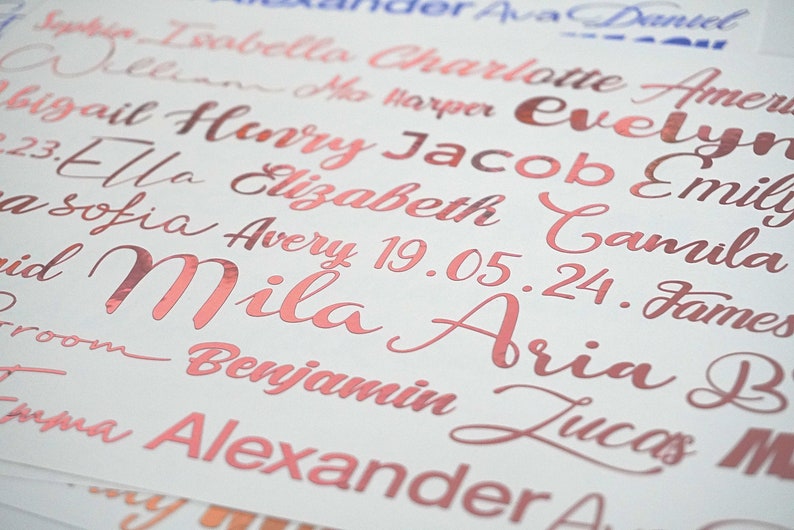 Alexander Ava Daniel
Sophia Isabella Charlotte Ameri
William Mia Harper Evelyn
Abigail Henry Jacob Emily
.23. Ella Elizabeth Camila
sofia Avery 19.05.24. James
Mila Aria B
Benjamin Lucas M
Emma Alexander Av